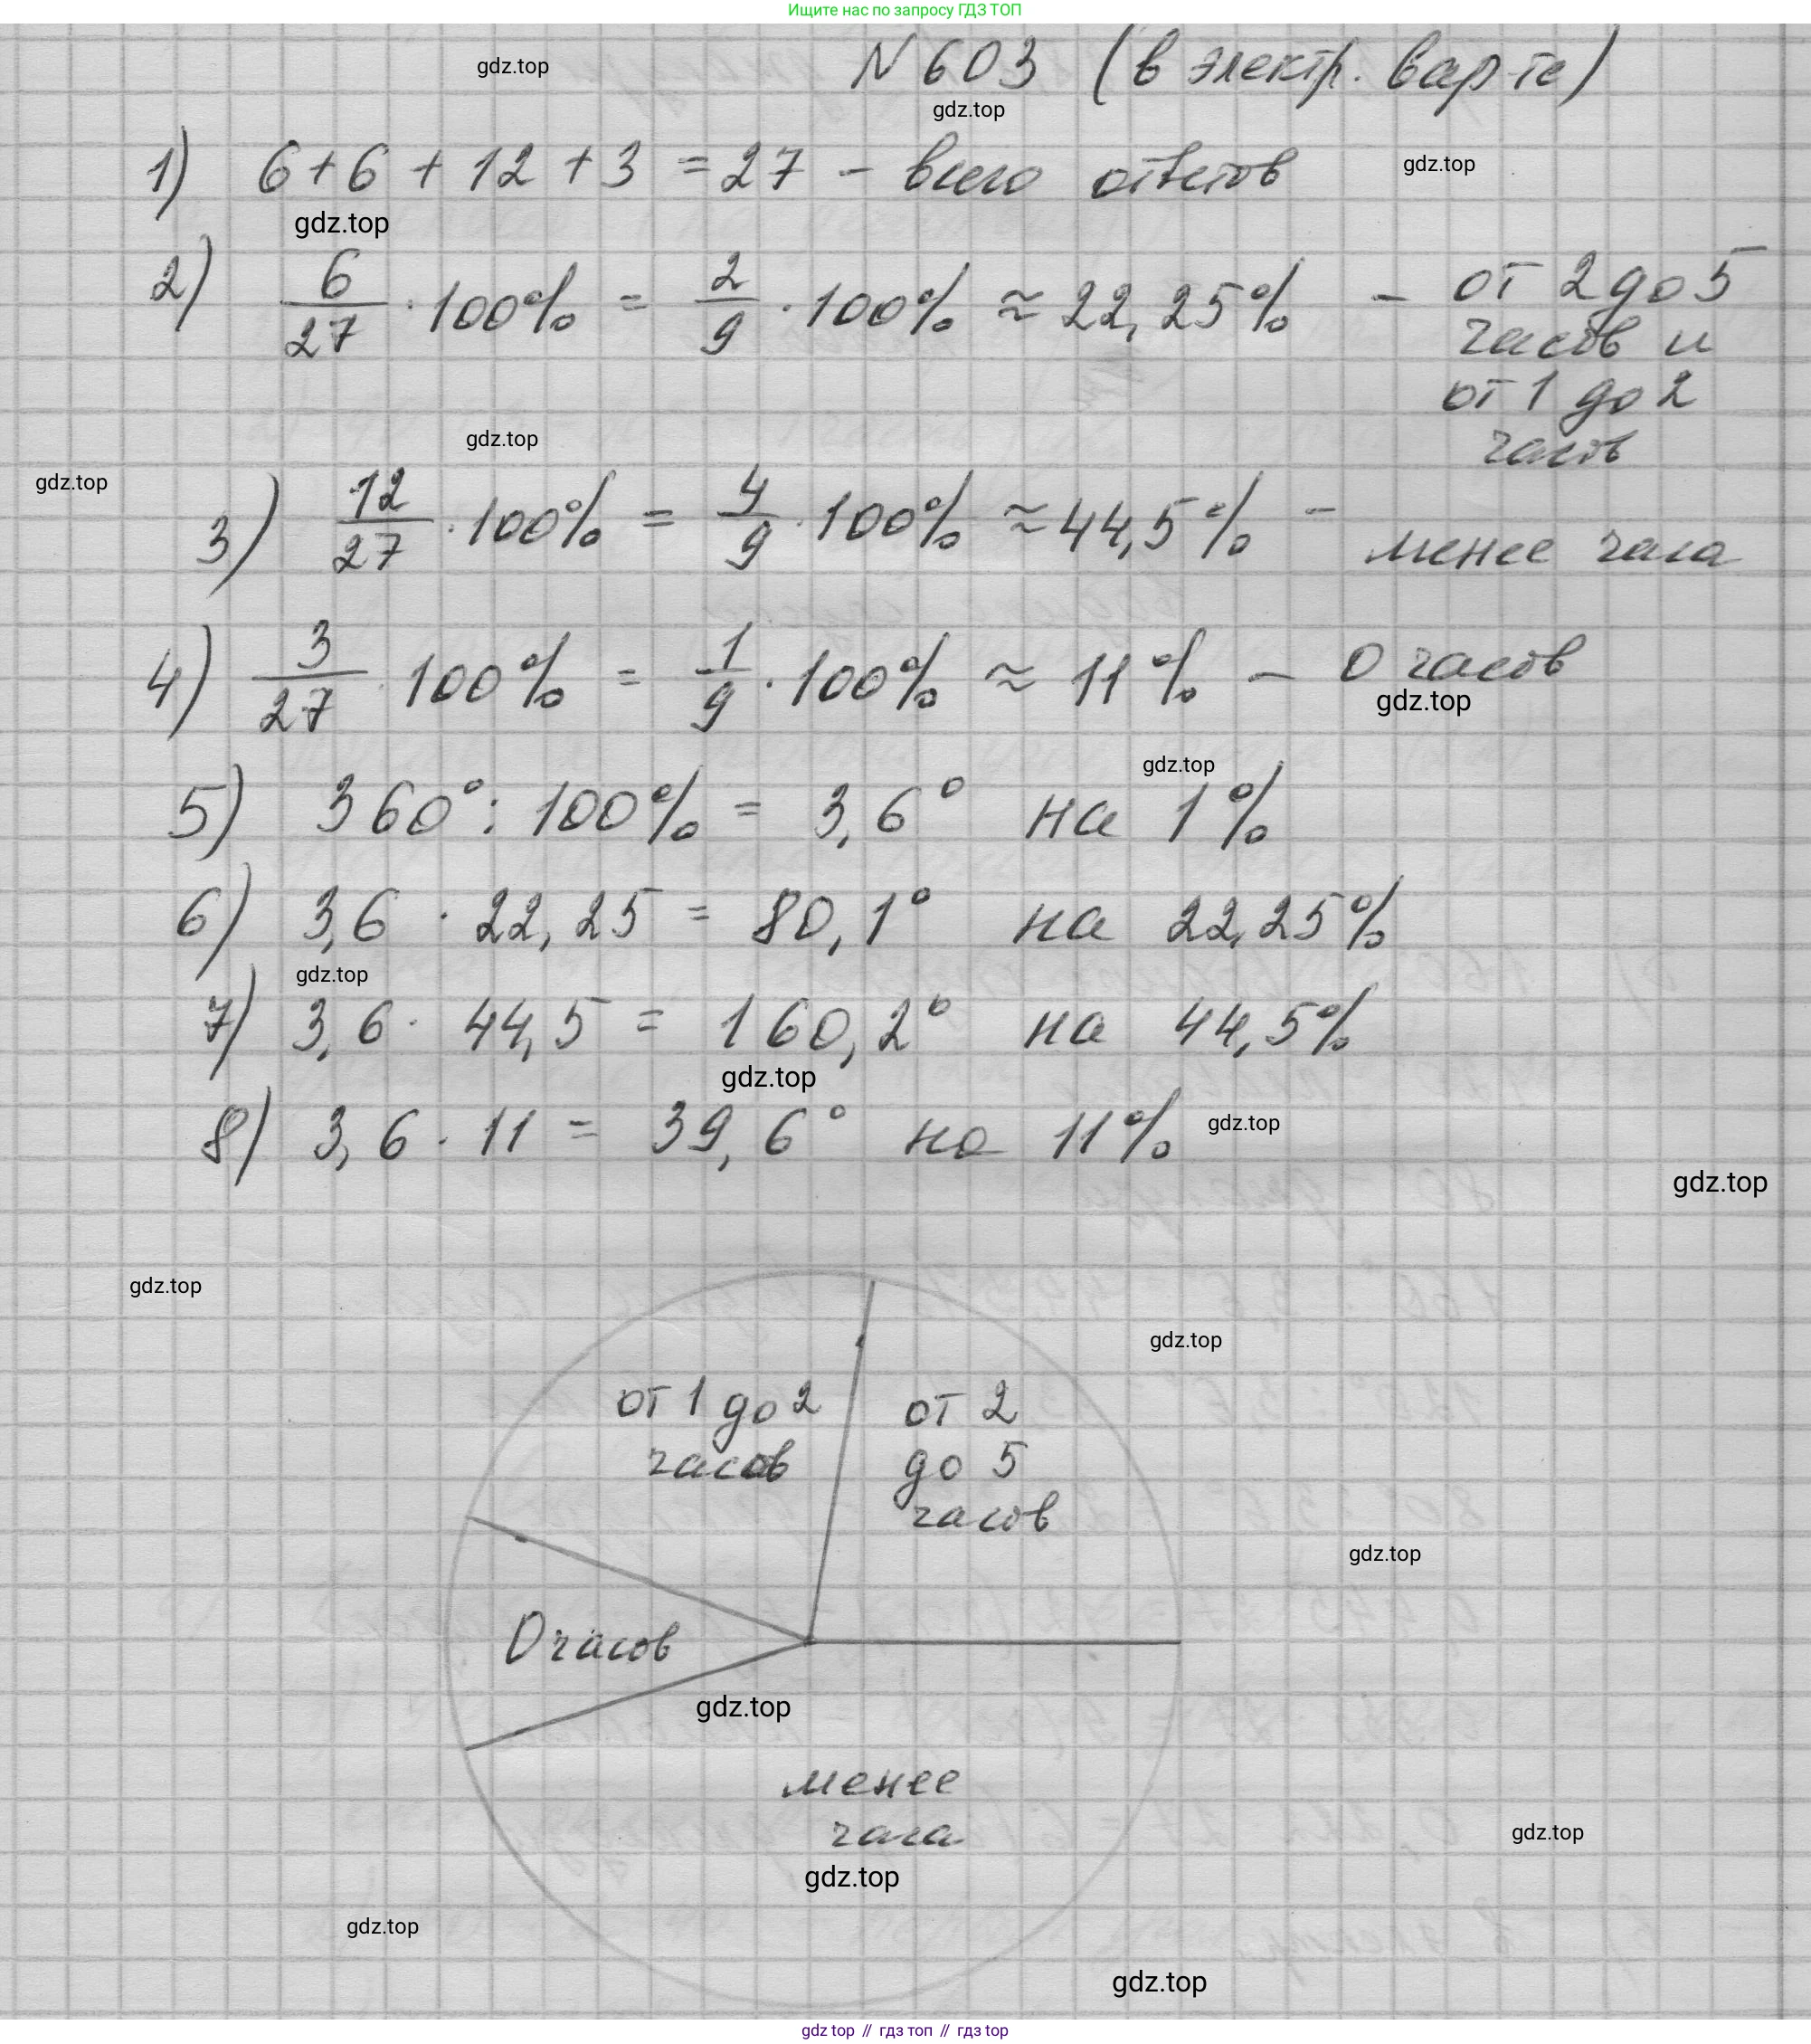 Ищите нас по запросу ГДЗ ТОП
N 603 (в электр. вар-те)
gdz.top
gdz.top
1) 6 + 6 + 12 + 3 = 27 - всего ответов
gdz.top
gdz.top
2) 6/27 · 100% = 2/9 · 100% ≈ 22,25% - от 2 до 5
часов и
от 1 до 2
часов
gdz.top
gdz.top
3) 12/27 · 100% = 4/9 · 100% ≈ 44,5% -
менее часа
4) 3/27 · 100% = 1/9 · 100% ≈ 11% - 0 часов
gdz.top
gdz.top
5) 360° : 100% = 3,6° на 1%
6) 3,6 · 22,25 = 80,1° на 22,25%
gdz.top
7) 3,6 · 44,5 = 160,2° на 44,5%
gdz.top
8) 3,6 · 11 = 39,6° на 11%
gdz.top
gdz.top
gdz.top
gdz.top
от 1 до 2
часов
от 2
до 5
часов
gdz.top
0 часов
gdz.top
менее
часа
gdz.top
gdz.top
gdz.top
gdz.top
gdz top // гдз топ // гдз top